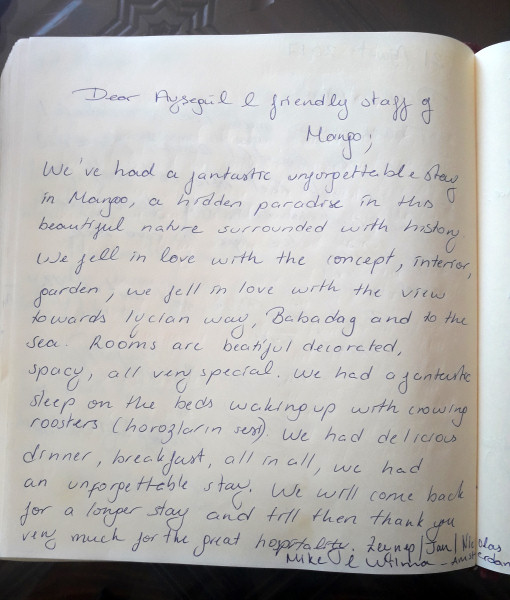 Dear Ayşegül & friendly staff of
Mango;
We've had a fantastic unforgettable stay
in Mango, a hidden paradise in this
beautiful nature surrounded with history.
We fell in love with the concept, interior,
garden, we fell in love with the view
towards lycian way, Babadag and to the
sea. Rooms are beatiful decorated,
spacy, all very special. We had a fantastic
sleep on the beds waking up with crowing
roosters (horozların sesi). We had delicious
dinner, breakfast, all in all, we had
an unforgettable stay. We will come back
for a longer stay and till then thank you
very much for the great hospitality. Zeynep/Jan/Nicolas
Mike & Wilma - Amsterdam